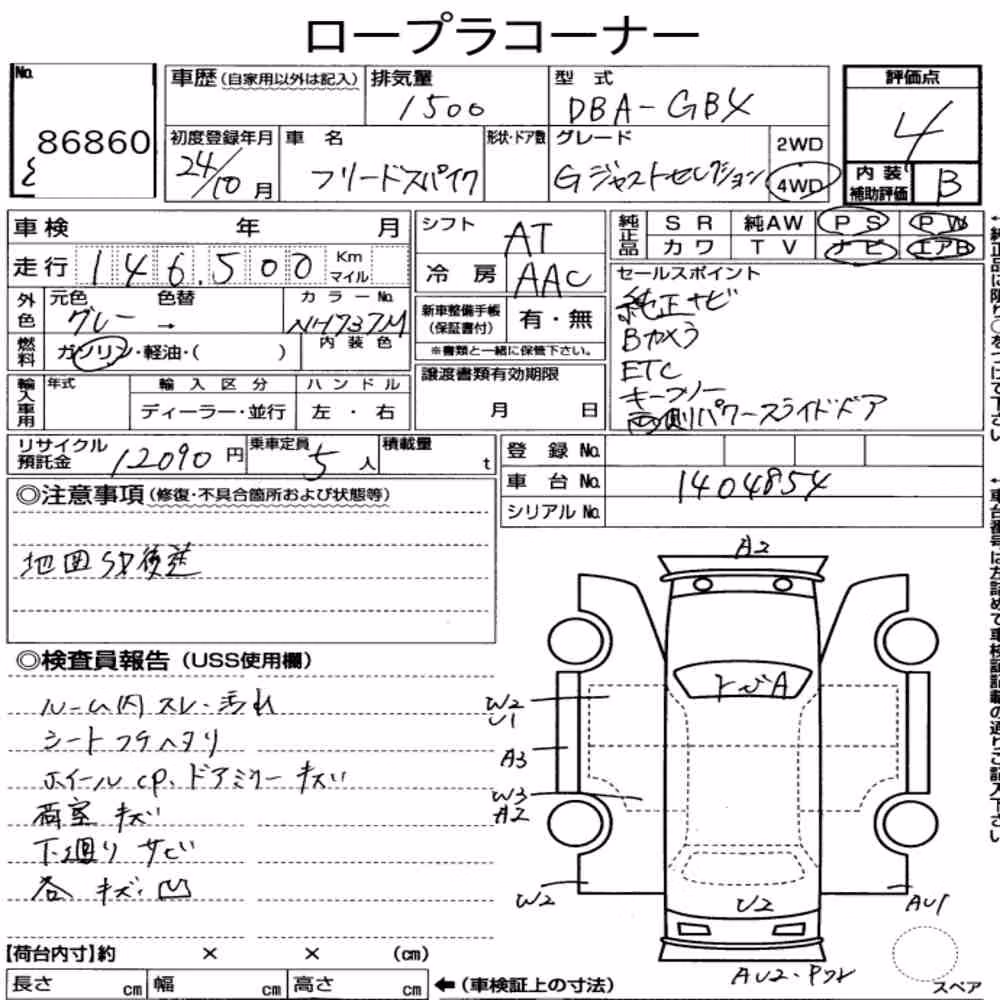 ロープラコーナー
No. 86860
車歴(自家用以外は記入)
排気量 1500
型式 DBA-GB4
評価点 4
初度登録年月 24/10月
車名 フリードスパイク
形状・ドア数
グレード Gジャストセレクション
2WD
4WD
内装補助評価 B
車検 年 月
走行 146,500 Km マイル
シフト AT
冷房 AAC
純正品 SR 純AW PS PW
カワ TV ナビ エアB
外色 元色 グレー → 色替
カラーNo. NH737M
燃料 ガソリン・軽油・( )
内装色
新車整備手帳(保証書付) 有・無
※書類と一緒に保管下さい。
セールスポイント
純正ナビ
Bカメラ
ETC
キーフリー
両側パワースライドドア
輸入車用 年式 輸入区分 ハンドル
ディーラー・並行 左・右
譲渡書類有効期限
月 日
リサイクル預託金 12090円
乗車定員 5人
積載量 t
登録No.
車台No. 1404854
シリアルNo.
◎注意事項(修復・不具合箇所および状態等)
地図SD後送
◎検査員報告(USS使用欄)
ルーム内スレ・汚れ
シートコゲヘタリ
ホイールcp、ドアミラーキズ
荷室キズ
下廻りサビ
各キズ・凹
A2
トビA
W2
U1
A3
W3
A2
W2
U2
AU1
AU2・Pフレ
スペア
【荷台内寸】約 × × (cm)
長さ cm 幅 cm 高さ cm ←(車検証上の寸法)
←純正品に限り○をつけて下さい
←車台番号は左詰めで車検証記載の通りご記入下さい